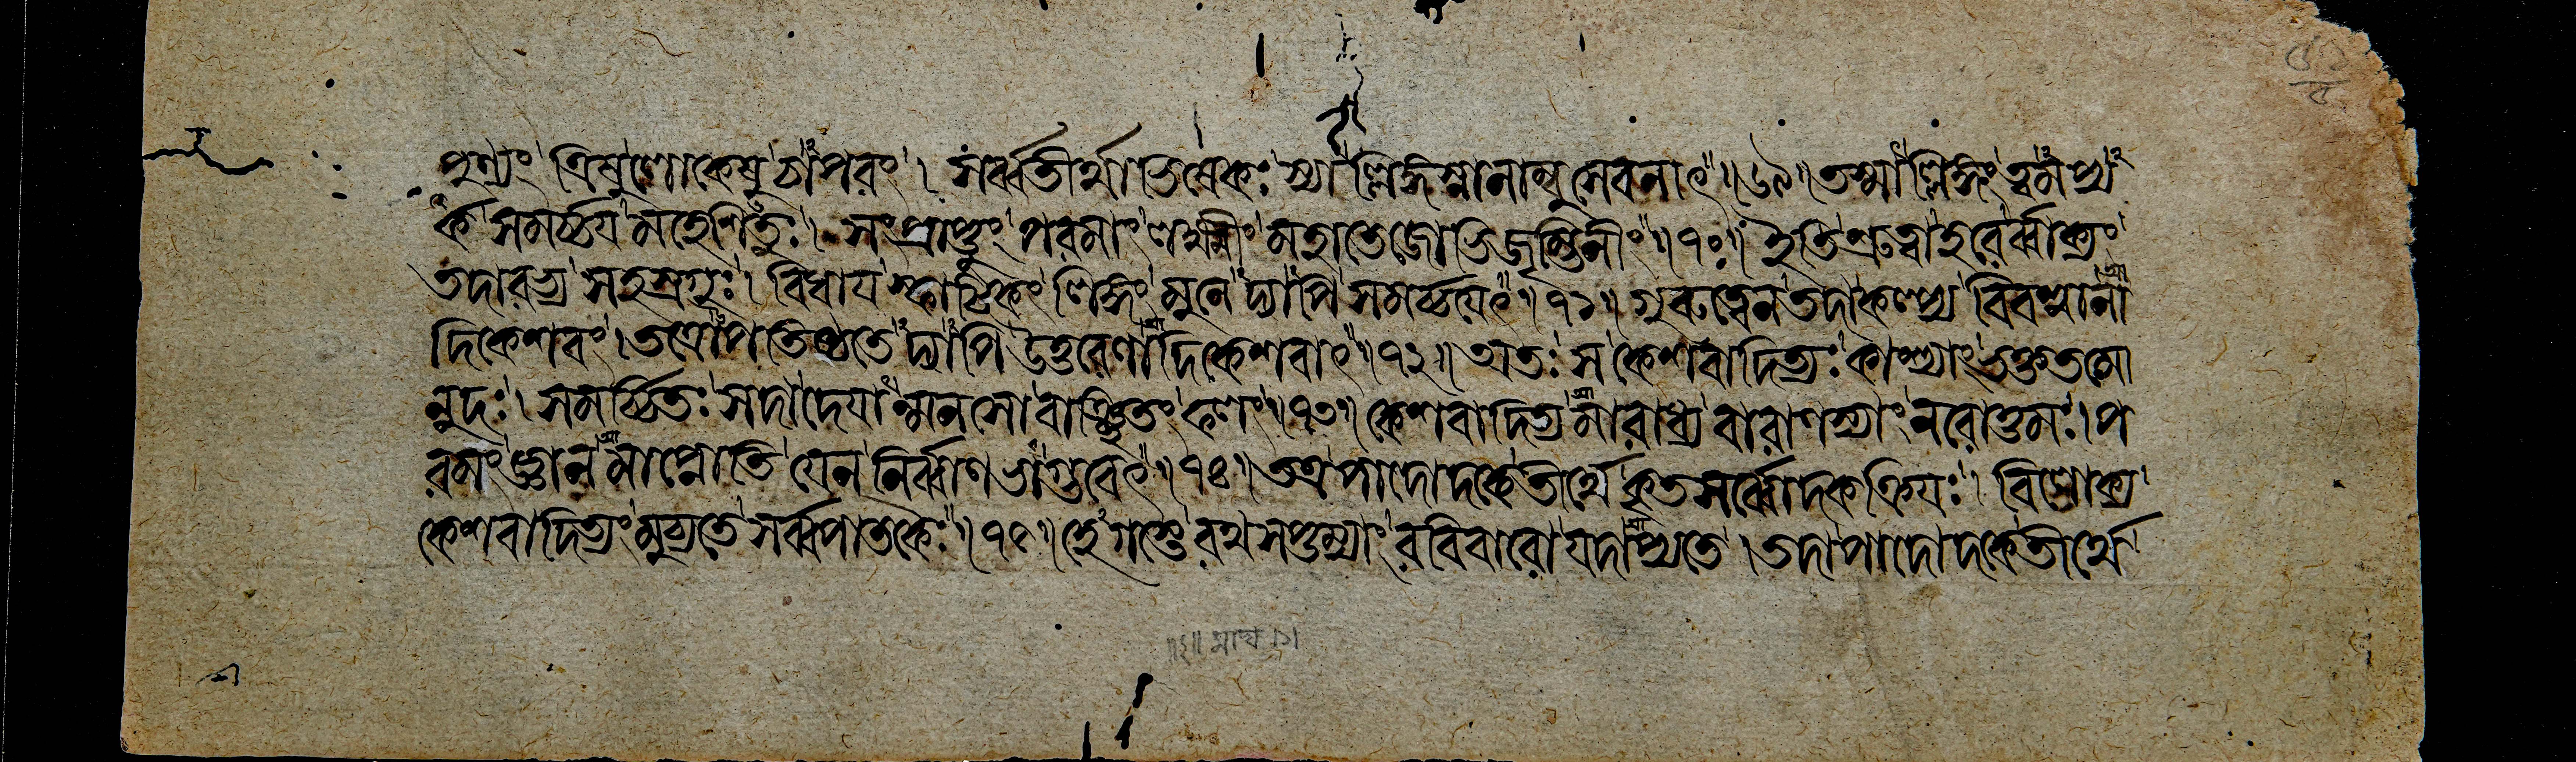 পুণ্যং ত্রিষু লোকেষু চাপরং । সর্ব্বতীর্থাভিষেকঃ স্যাল্লিঙ্গস্নানাম্বুসেবনাৎ ॥ ৬৯ ॥ তস্মাল্লিঙ্গং ত্বমপ্য
র্ক সমর্চ্চয মহেশিতুঃ । সংপ্রাপ্তুং পরমাং লক্ষ্মীং মহাতেজোভিজৃম্ভিনীং ॥ ৭০ ॥ ইতি শ্রুত্বা হরের্ব্বাক্যং
তদারভ্য সহস্রগুঃ । বিধায স্ফাটিকং লিঙ্গং মুনেদ্যাপি সমর্চ্চযেৎ ॥ ৭১ ॥ গুরুত্বেন তদাকলয্য বিবস্বানা
দিকেশবং । তত্রোপতিষ্ঠতেদ্যাপি উত্তরেণাদিকেশবাৎ ॥ ৭২ ॥ অতঃ স কেশবাদিত্যঃ কাশ্যাং ভক্ততমো
নুদঃ । সমর্চ্চিতঃ সদা দেযান্মনসো বাঞ্ছিতং ফলং ॥ ৭৩ ॥ কেশবাদিত্যমারাধ্য বারাণস্যাং নরোত্তমঃ । প
রমং জ্ঞানমাপ্নোতি যেন নির্ব্বাণভাগ্ভবেৎ ॥ ৭৪ ॥ তত্র পাদোদকে তীর্থে কৃতসর্ব্বোদকক্রিযঃ । বিলোক্য
কেশবাদিত্যং মুচ্যতে সর্ব্বপাতকৈঃ ॥ ৭৫ ॥ রথসপ্তম্যাং রবিবারো যদাপ্যতে । তদা পাদোদকে তীর্থে
॥২॥ माघ